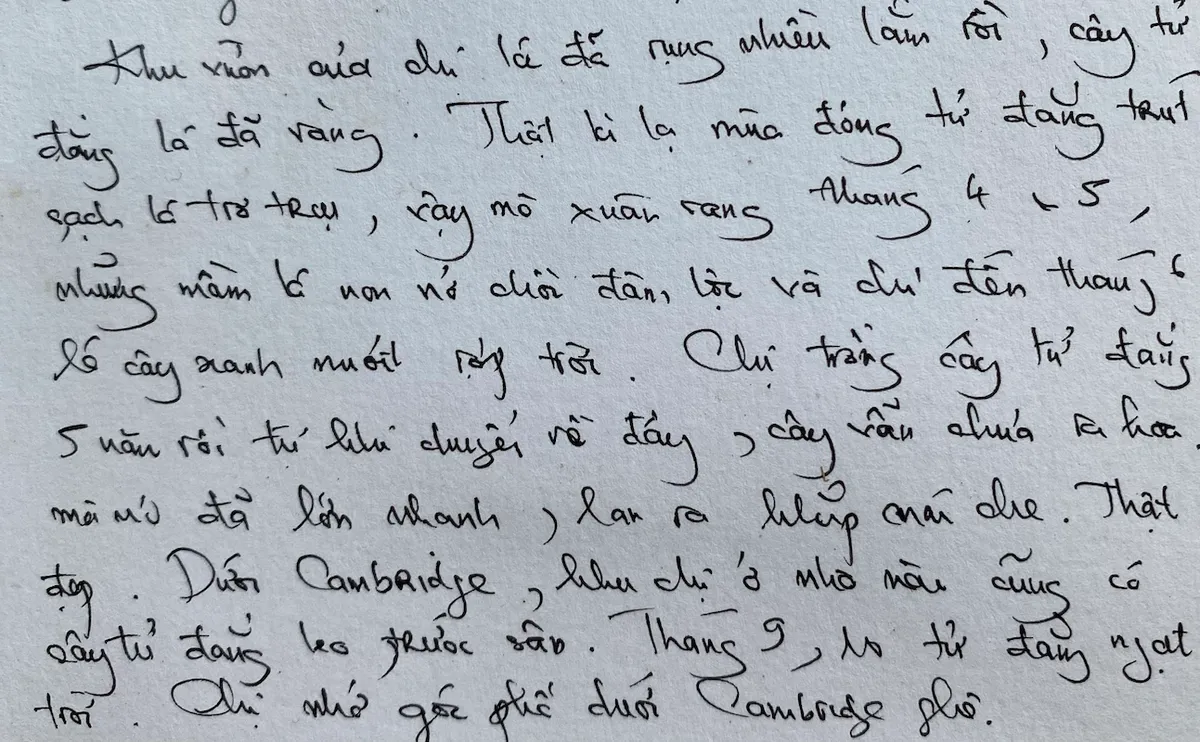 Khu vườn của chị lá đã rụng nhiều lắm rồi, cây tử
đằng lá đã vàng. Thật kì lạ mùa đông tử đằng trút
sạch lá trơ trụi, vậy mà xuân sang tháng 4, 5,
những mầm lá non nở chồi đâm lộc và chỉ đến tháng 6
lá cây xanh mướt rợp trời. Chị trồng cây tử đằng
5 năm rồi từ khi chuyển về đây, cây vẫn chưa ra hoa
mà nó đã lớn nhanh, lan ra khắp mái che. Thật
đẹp. Dưới Cambridge, khu chị ở nhà nào cũng có
cây tử đằng leo trước sân. Tháng 9, tử đằng ngạt
trời. Chị nhớ góc phố dưới Cambridge ghê.